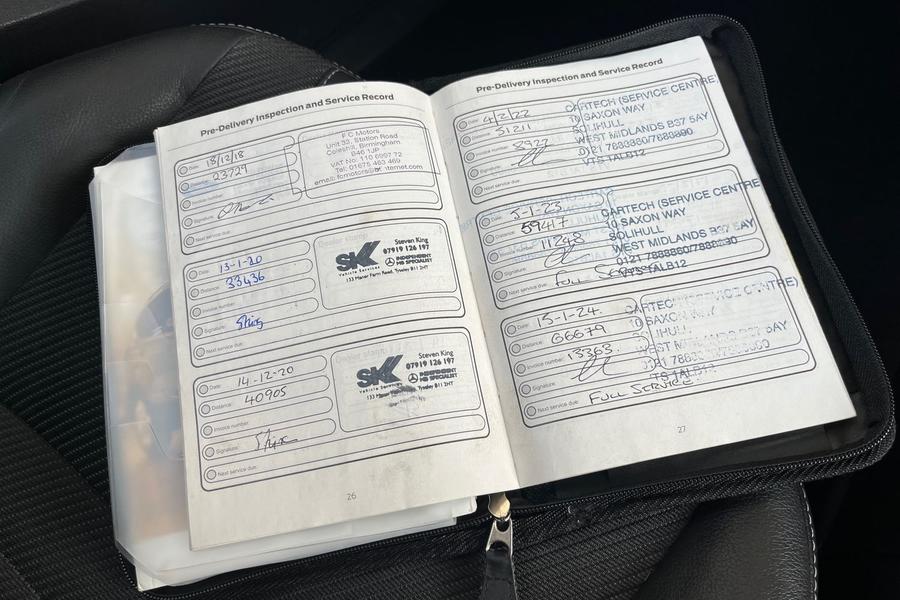 Pre-Delivery Inspection and Service Record
Date: 18/12/18
Distance: 23729
Invoice number:
Signature:
Next service due:
F C Motors
Unit 33, Station Road
Coleshill, Birmingham
B46 1JP
VAT No. 110 6997 72
Tel: 01675 463 469
Date: 13-1-20
Distance: 33436
Invoice number:
Signature:
Next service due:
SK
Vehicle Services
Steven King
07919 126 197
INDEPENDENT
MB SPECIALIST
133 Manor Farm Road, Tyseley B11 2HT
Date: 14-12-20
Distance: 40905
Invoice number:
Signature:
Next service due:
SK
Vehicle Services
Steven King
07919 126 197
INDEPENDENT
MB SPECIALIST
133 Manor Farm Road, Tyseley B11 2HT
26
Pre-Delivery Inspection and Service Record
Date: 4/2/22
Distance: 51211
Invoice number: 8927
Signature:
Next service due:
CARTECH (SERVICE CENTRE
10 SAXON WAY
SOLIHULL
WEST MIDLANDS B37 5AY
VTS TALB12
Date: 5-1-23
Distance: 59417
Invoice number: 11248
Signature:
Next service due: FULL SERVICE
CARTECH (SERVICE CENTRE
10 SAXON WAY
SOLIHULL
WEST MIDLANDS B37 5AY
Date: 15-1-24
Distance: 66679
Invoice number: 13363
Signature:
Next service due: FULL SERVICE
CARTECH (SERVICE CENTRE)
10 SAXON WAY
SOLIHULL
WEST MIDLANDS B37 5AY
27